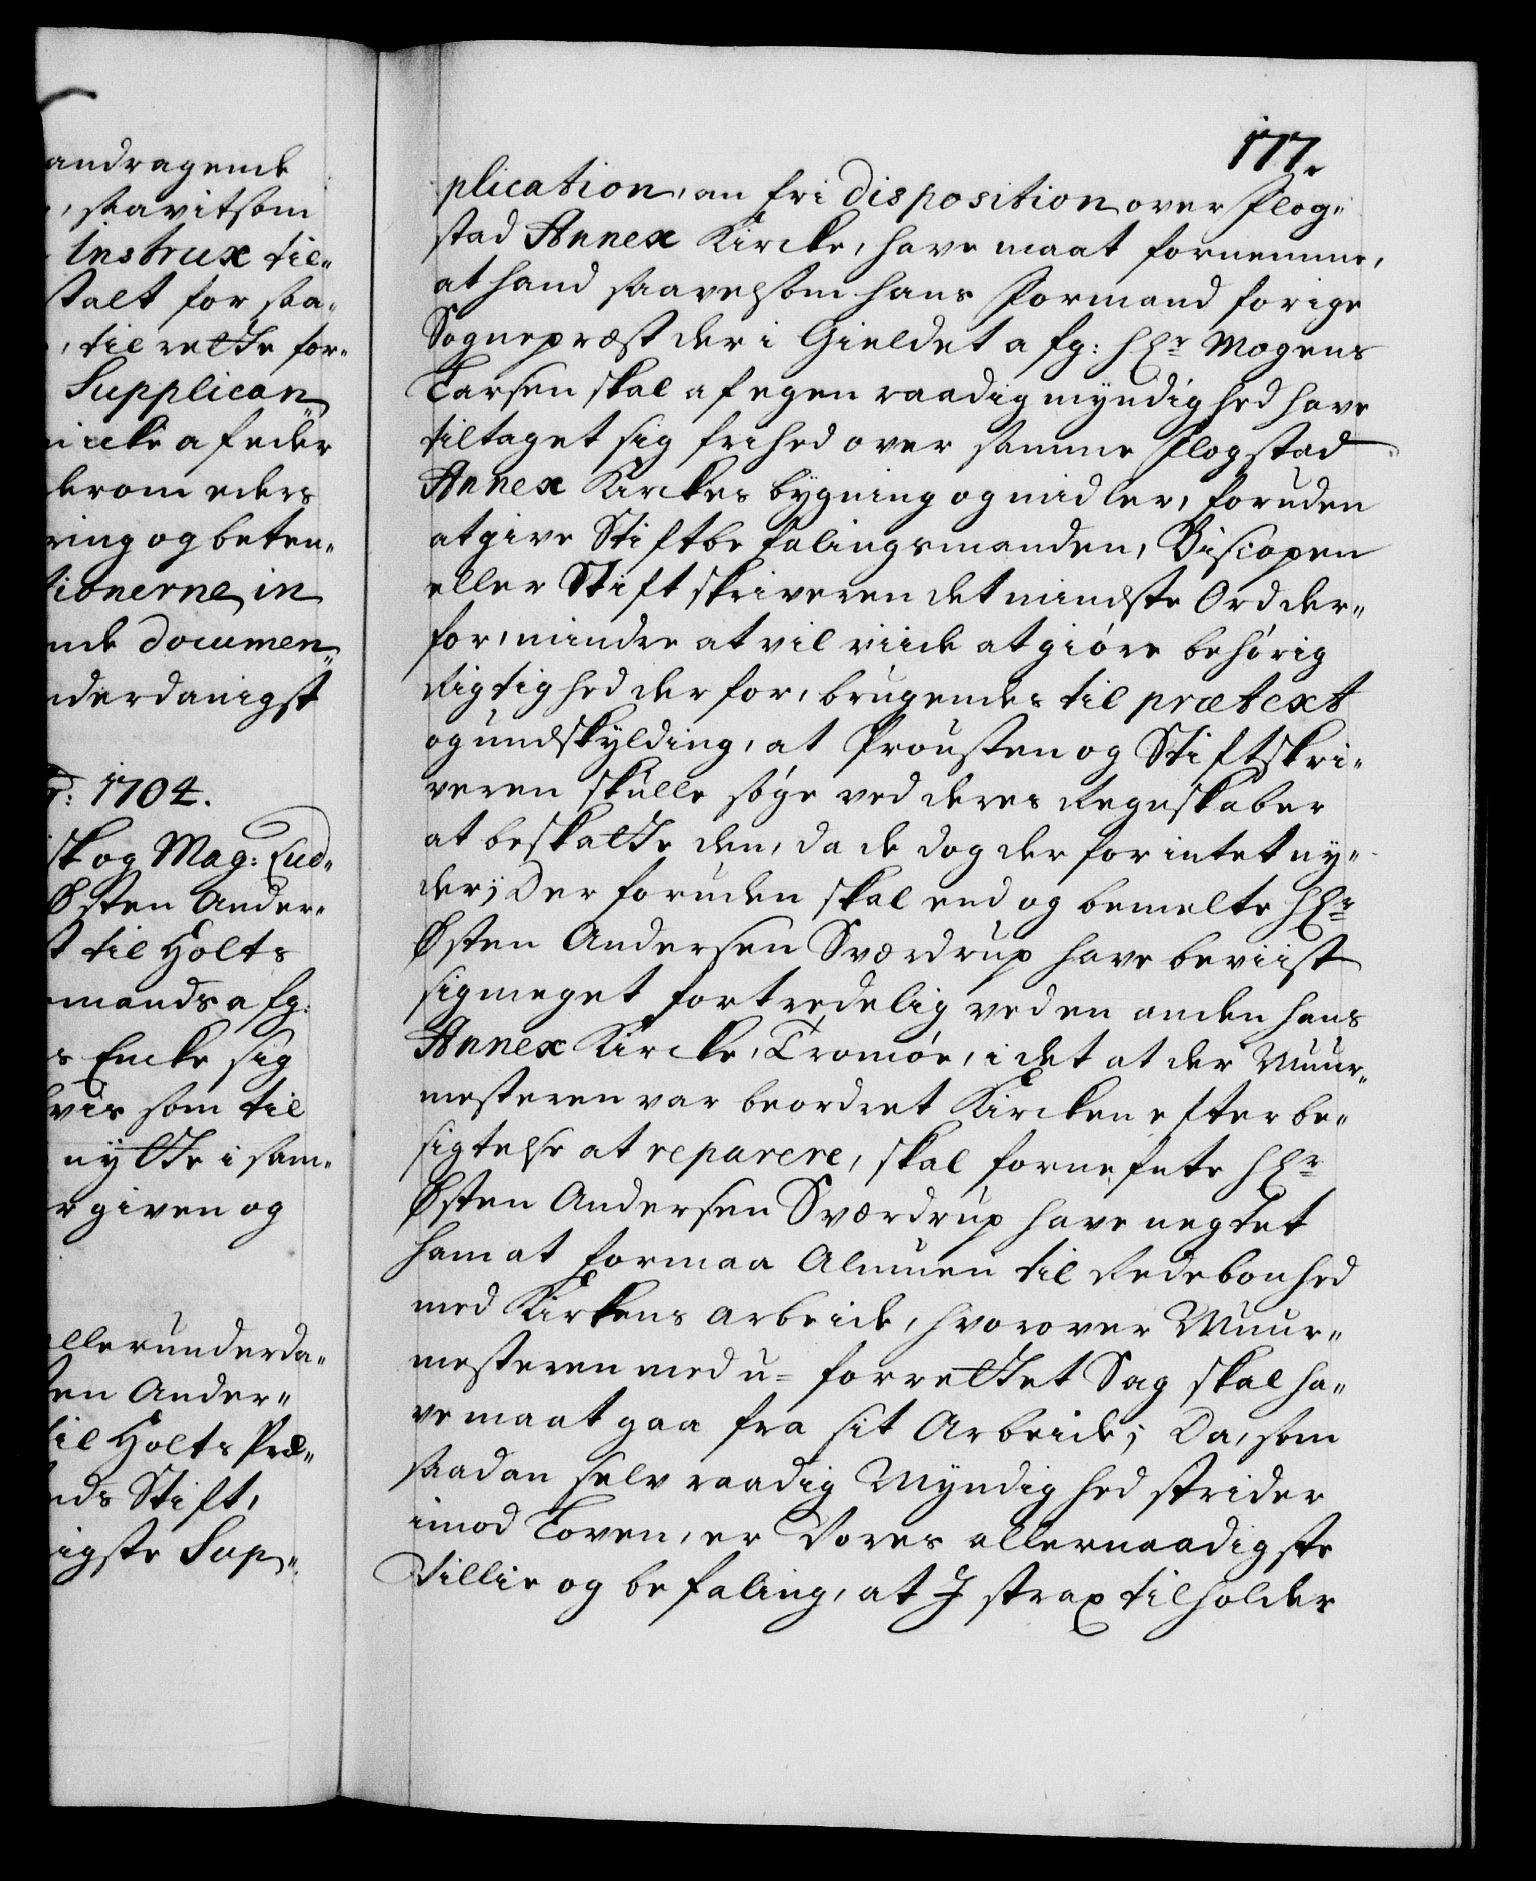 andragende
, saavitsom
Instrux til„
stalt for saa„
, til rette for„
Supplican„
af eder
derom eders
ring og beten„
tionerne in
nde documen„
nderdanigst
: 1704.
sk og Mag: Lud„
Østen Ander„
t til Holts
mands afg:
s Encke sig
vis som til
nytte i sam„
r given og
allerunderda„
ten Ander„
til Holts Præ„
nds Stift,
igste Sup„
177.
plication, an fri disposition over Flog„
stad Annex Kircke, have maat fornemme,
at hand saavelsom hans Formand forige
Sognepræst der i Gieldet afg: Hr Mogens
Larsen skal af egen raadig myndighed have
tiltaget sig frihed over samme Flogstad
Annex Kirckes bygning og midler, foruden
at give Stiftbefalingsmanden, Biscopen
eller Stiftskriveren det mindste Ord der„
for, mindre at vil viide at giöre behörig
Rigtighed derfor, brugendes til prætext
og undskylding, at Prousten og Stiftskri„
veren skulle söge ved deres Regnskaber
at beskatte den, da de dog derfor intet ny„
der; Der foruden skal end og bemelte Hr
Østen Andersen Sværdrup have beviist
sig meget fortredelig ved en anden hans
Annex Kircke, Tromöe, i det at der Muur„
mesteren var beordret Kircken efter be„
sigtelse at reparere, skal fornefnte Hr
Østen Andersen Sværdrup have negtet
ham at formaa Almuen til Redebonhed
med Kirkens arbeide, hvorover Muur„
mesteren med u= forrettet Sag skal ha„
ve maat gaa fra sit Arbeide; Da, som
saadan selv raadig Myndighed strider
imod Loven, er Vores allernaadigste
Villie og befaling, at I strax tilholder